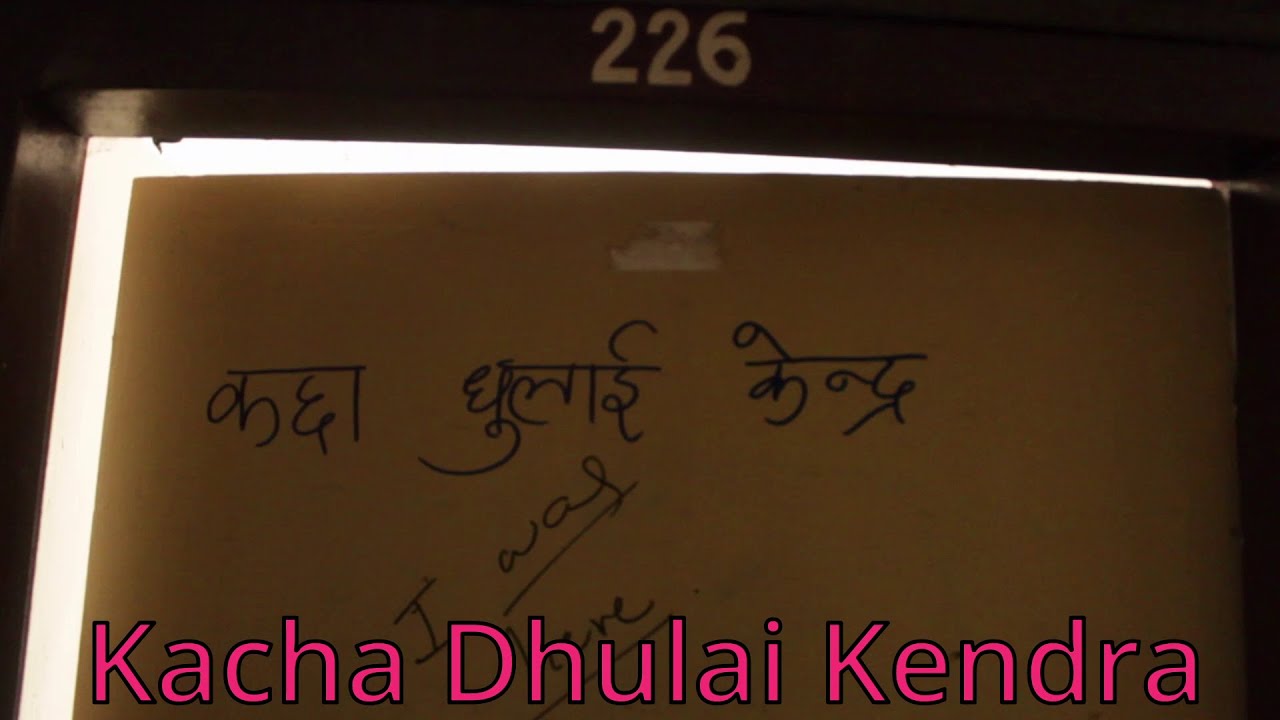 226
कद्दा धुलाई केन्द्र
I was
here
Kacha Dhulai Kendra